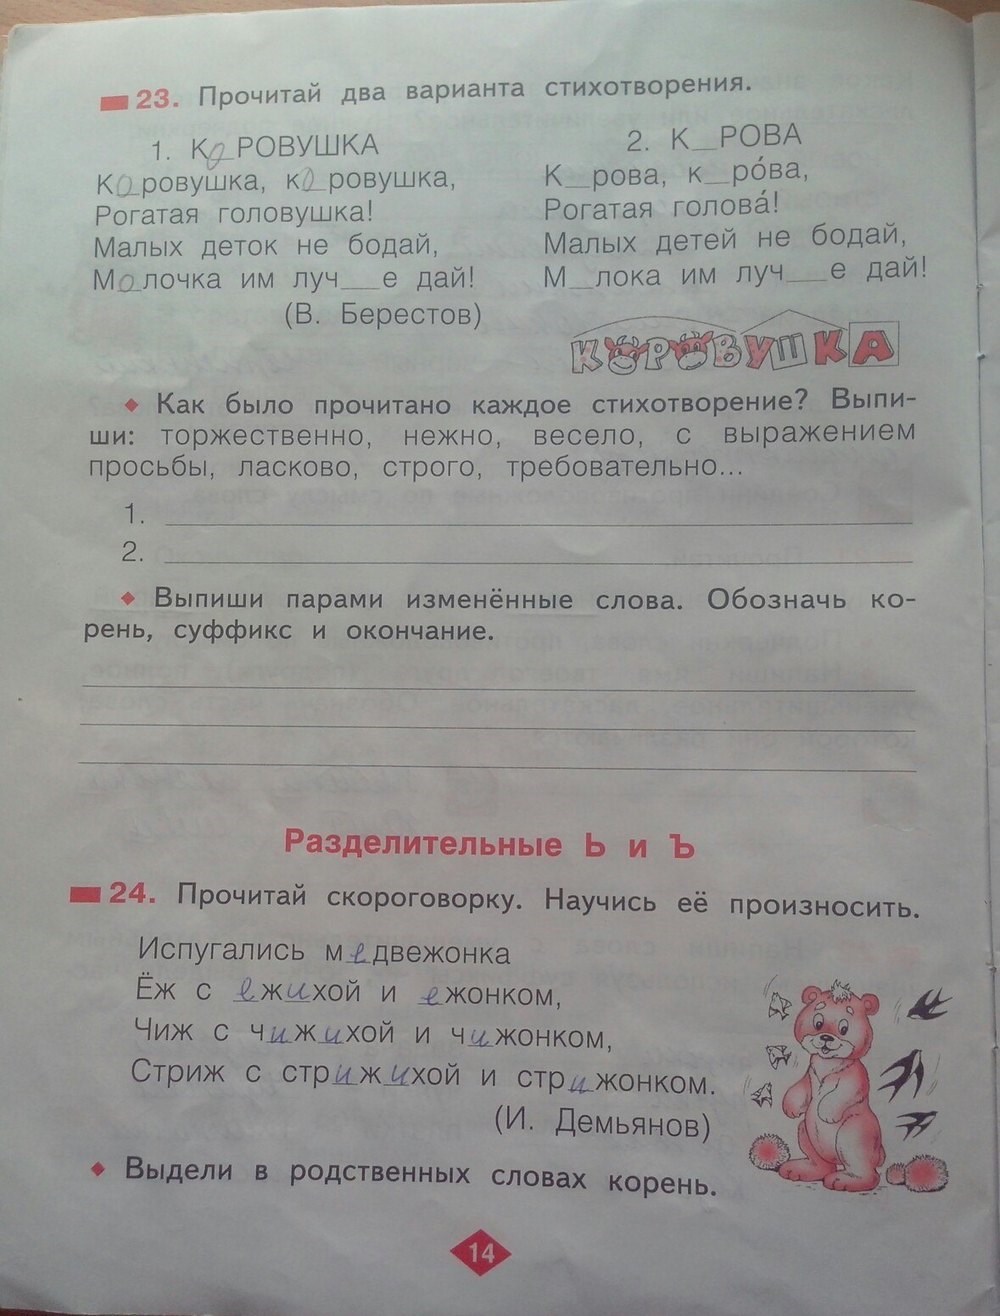 23. Прочитай два варианта стихотворения.
1. КО_РОВУШКА
Ко_ровушка, ко_ровушка,
Рогатая головушка!
Малых деток не бодай,
Мо_лочка им луч__е дай!
(В. Берестов)
2. К_РОВА
К_рова, к_ро́ва,
Рогатая голова́!
Малых детей не бодай,
М_лока им луч__е дай!
КОРОВУШКА
Как было прочитано каждое стихотворение? Выпи-
ши: торжественно, нежно, весело, с выражением
просьбы, ласково, строго, требовательно...
1.
2.
Выпиши парами изменённые слова. Обозначь ко-
рень, суффикс и окончание.
Разделительные Ь и Ъ
24. Прочитай скороговорку. Научись её произносить.
Испугались медвежонка
Ёж с ежихой и ежонком,
Чиж с чижихой и чижонком,
Стриж с стрижихой и стрижонком.
(И. Демьянов)
Выдели в родственных словах корень.
14